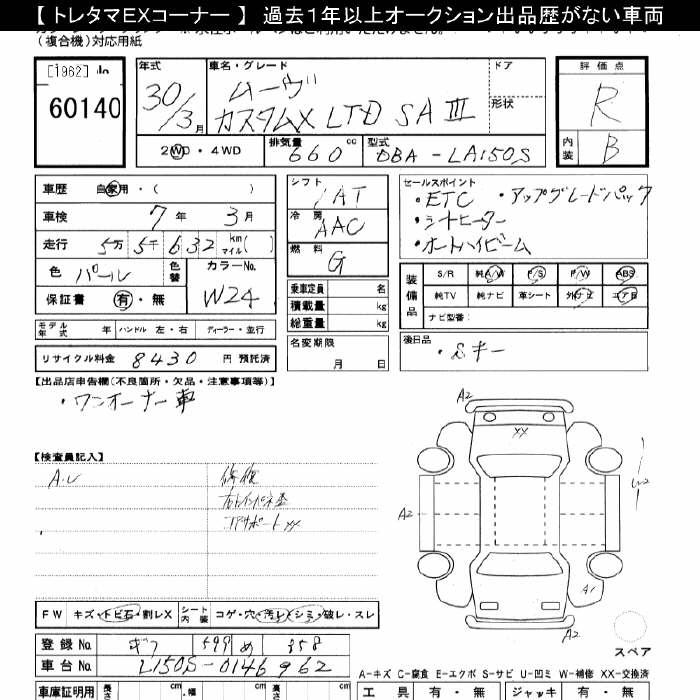 【 トレタマEXコーナー 】 過去1年以上オークション出品歴がない車両
（複合機）対応用紙
[1962]
60140
年式 30/3月
車名・グレード ムーヴ
カスタムX LTD SAⅢ
ドア
形状
評価点 R
内装 B
2WD・4WD
排気量 660 cc
型式 DBA-LA150S
車歴 自家用・（ ）
車検 7年 3月
走行 5万5千632 km マイル( )
色 パール 色替
カラーNo. W24
保証書 有・無
モデル年式 年 ハンドル 左・右 ディーラー・並行
リサイクル料金 8430 円 預託済
シフト IAT
冷房 AAC
燃料 G
乗車定員 名
積載量 kg
総重量 kg
名変期限
月 日
セールスポイント
・ETC ・アップグレードパック
・シートヒーター
・オートハイビーム
装備品
S/R 純A/W P/S P/W ABS
純TV 純ナビ 革シート 外ナビ エアB
ナビ型番：
後日品
・Sキー
【出品店申告欄(不良箇所・欠品・注意事項等)】
・ワンオーナー車
【検査員記入】
A2
XX
A2
A2
A1
A2
スペア
FW キズ・トビ石・割レX シート内装 コゲ・穴・汚レ・シミ・破レ・スレ
登録No. ギフ 599 め 358
車台No. L150S-0146962
A-キズ C-腐食 E-エクボ S-サビ U-凹ミ W-補修 XX-交換済
車庫証明用 長さ cm 幅 cm 高さ cm
工具 有・無 ジャッキ 有・無